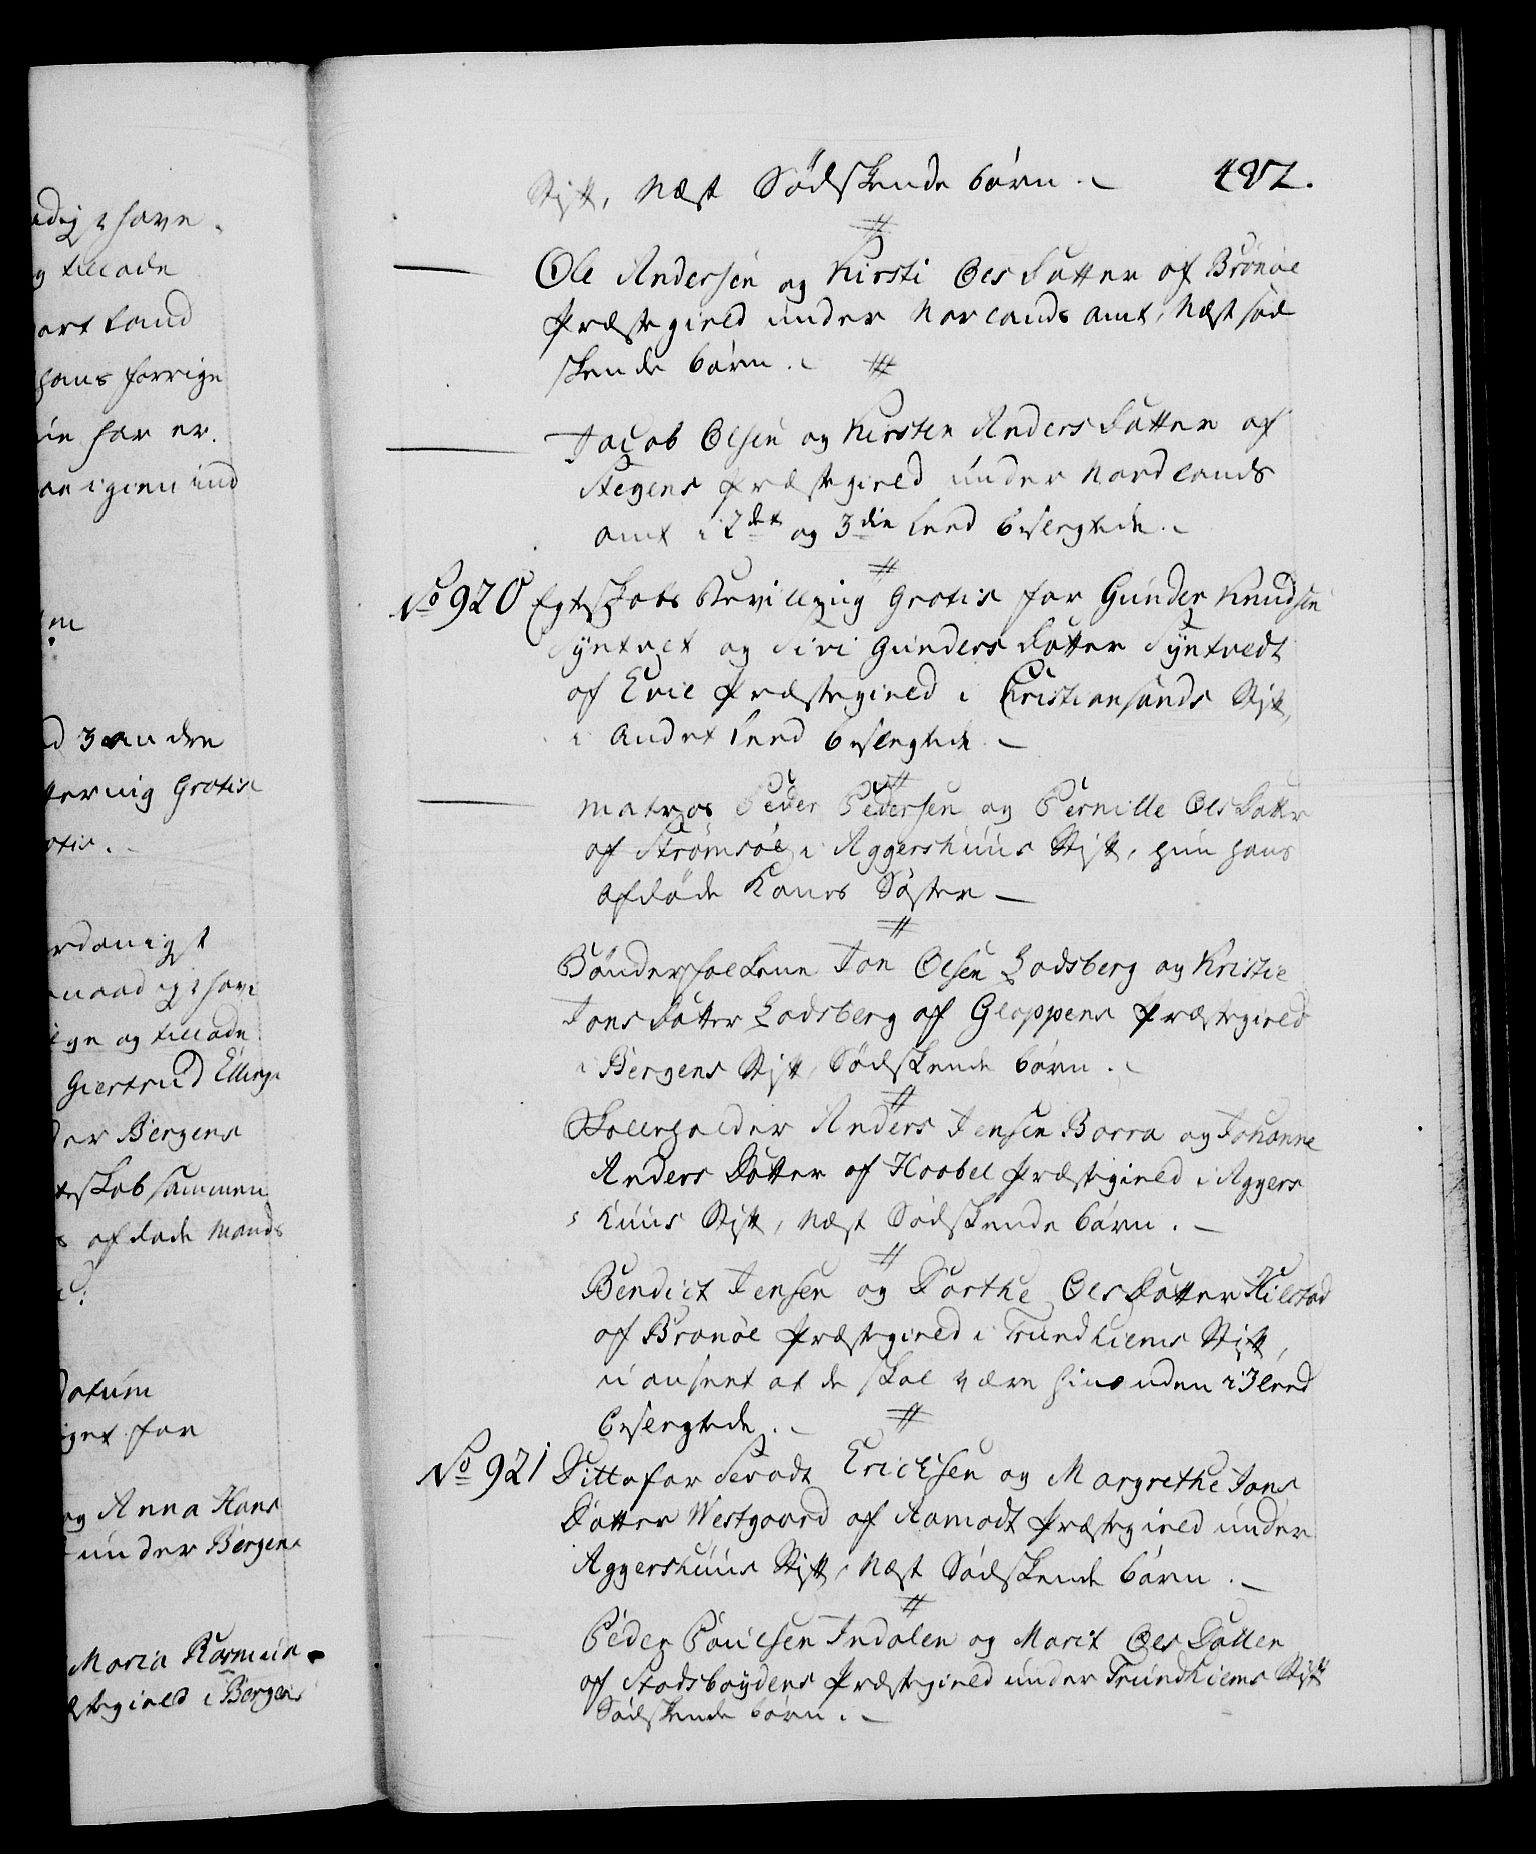 adig: have
og tillade
vort Land
hans forrige
har er
igien ind
d 3 andre
Gratis
otis.
rdanigst
naadigst have
og tillade
Giertrud Ellings
der Bergens
teskab sammen
afdøde Mands
datum
for
og Anna Hans
under Bergens
Maria
stegield i Bergens
492.
Stift, Næst Sødskende børn.
Ole Andersen og Kirsti Olsdatter af Brønøe
Præstegield under Norlands Amt, Næstsød
skende børn.
Jacob Olsen og Kirsten Andersdatter af
Stegens Præstegield under Nordlands
Amt i 2det og 3die Leed beslegtede.
No 920 Egteskabs Bevilling Gratis for Gunder Knudsen
Syntvet og Siri Gundersdatter Syntvedt
af Evie Præstegield i Christiansands Stift,
i Andet Leed beslegtede.
Matros Peder Pedersen og Pernille Olsdattr
af Strømsøe i Aggershuus Stift, hun hans
afdøde Kones Søster
Bønderfolkene Jon Olsen Lodsberg og Kristie
Jonsdatter Lodsberg af Gloppens Præstegield
i Bergens Stift, Sødskende børn.
Skoleholder Anders Jensen Borra og Johanne
Anders Datter af Haabel Præstegield i Aggers
huus Stift, Næst Sødskende børn.
Bendict Jensen og Dorthe Olsdatter Hilstad
af Brønøe Præstegield i Trundhiems Stift,
uanseet at de skal være hinanden i 3 Leed
beslegtede.
No 921 Ditto for Sevadt Erichsen og Margrethe Jons
Datter Westgaard af Aamodt Præstegield under
Aggershuus Stift, Næst Sødskende børn.
Peder Povelsen Indalen og Marit Olsdatter
af Stadsboydens Præstegield under Trundhiems Stift
Sødskende børn.